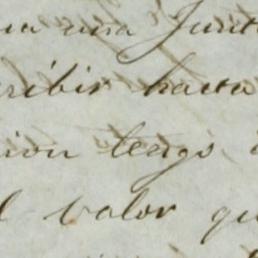 una Junt
cribir hasta
cion tengo
l valor qu